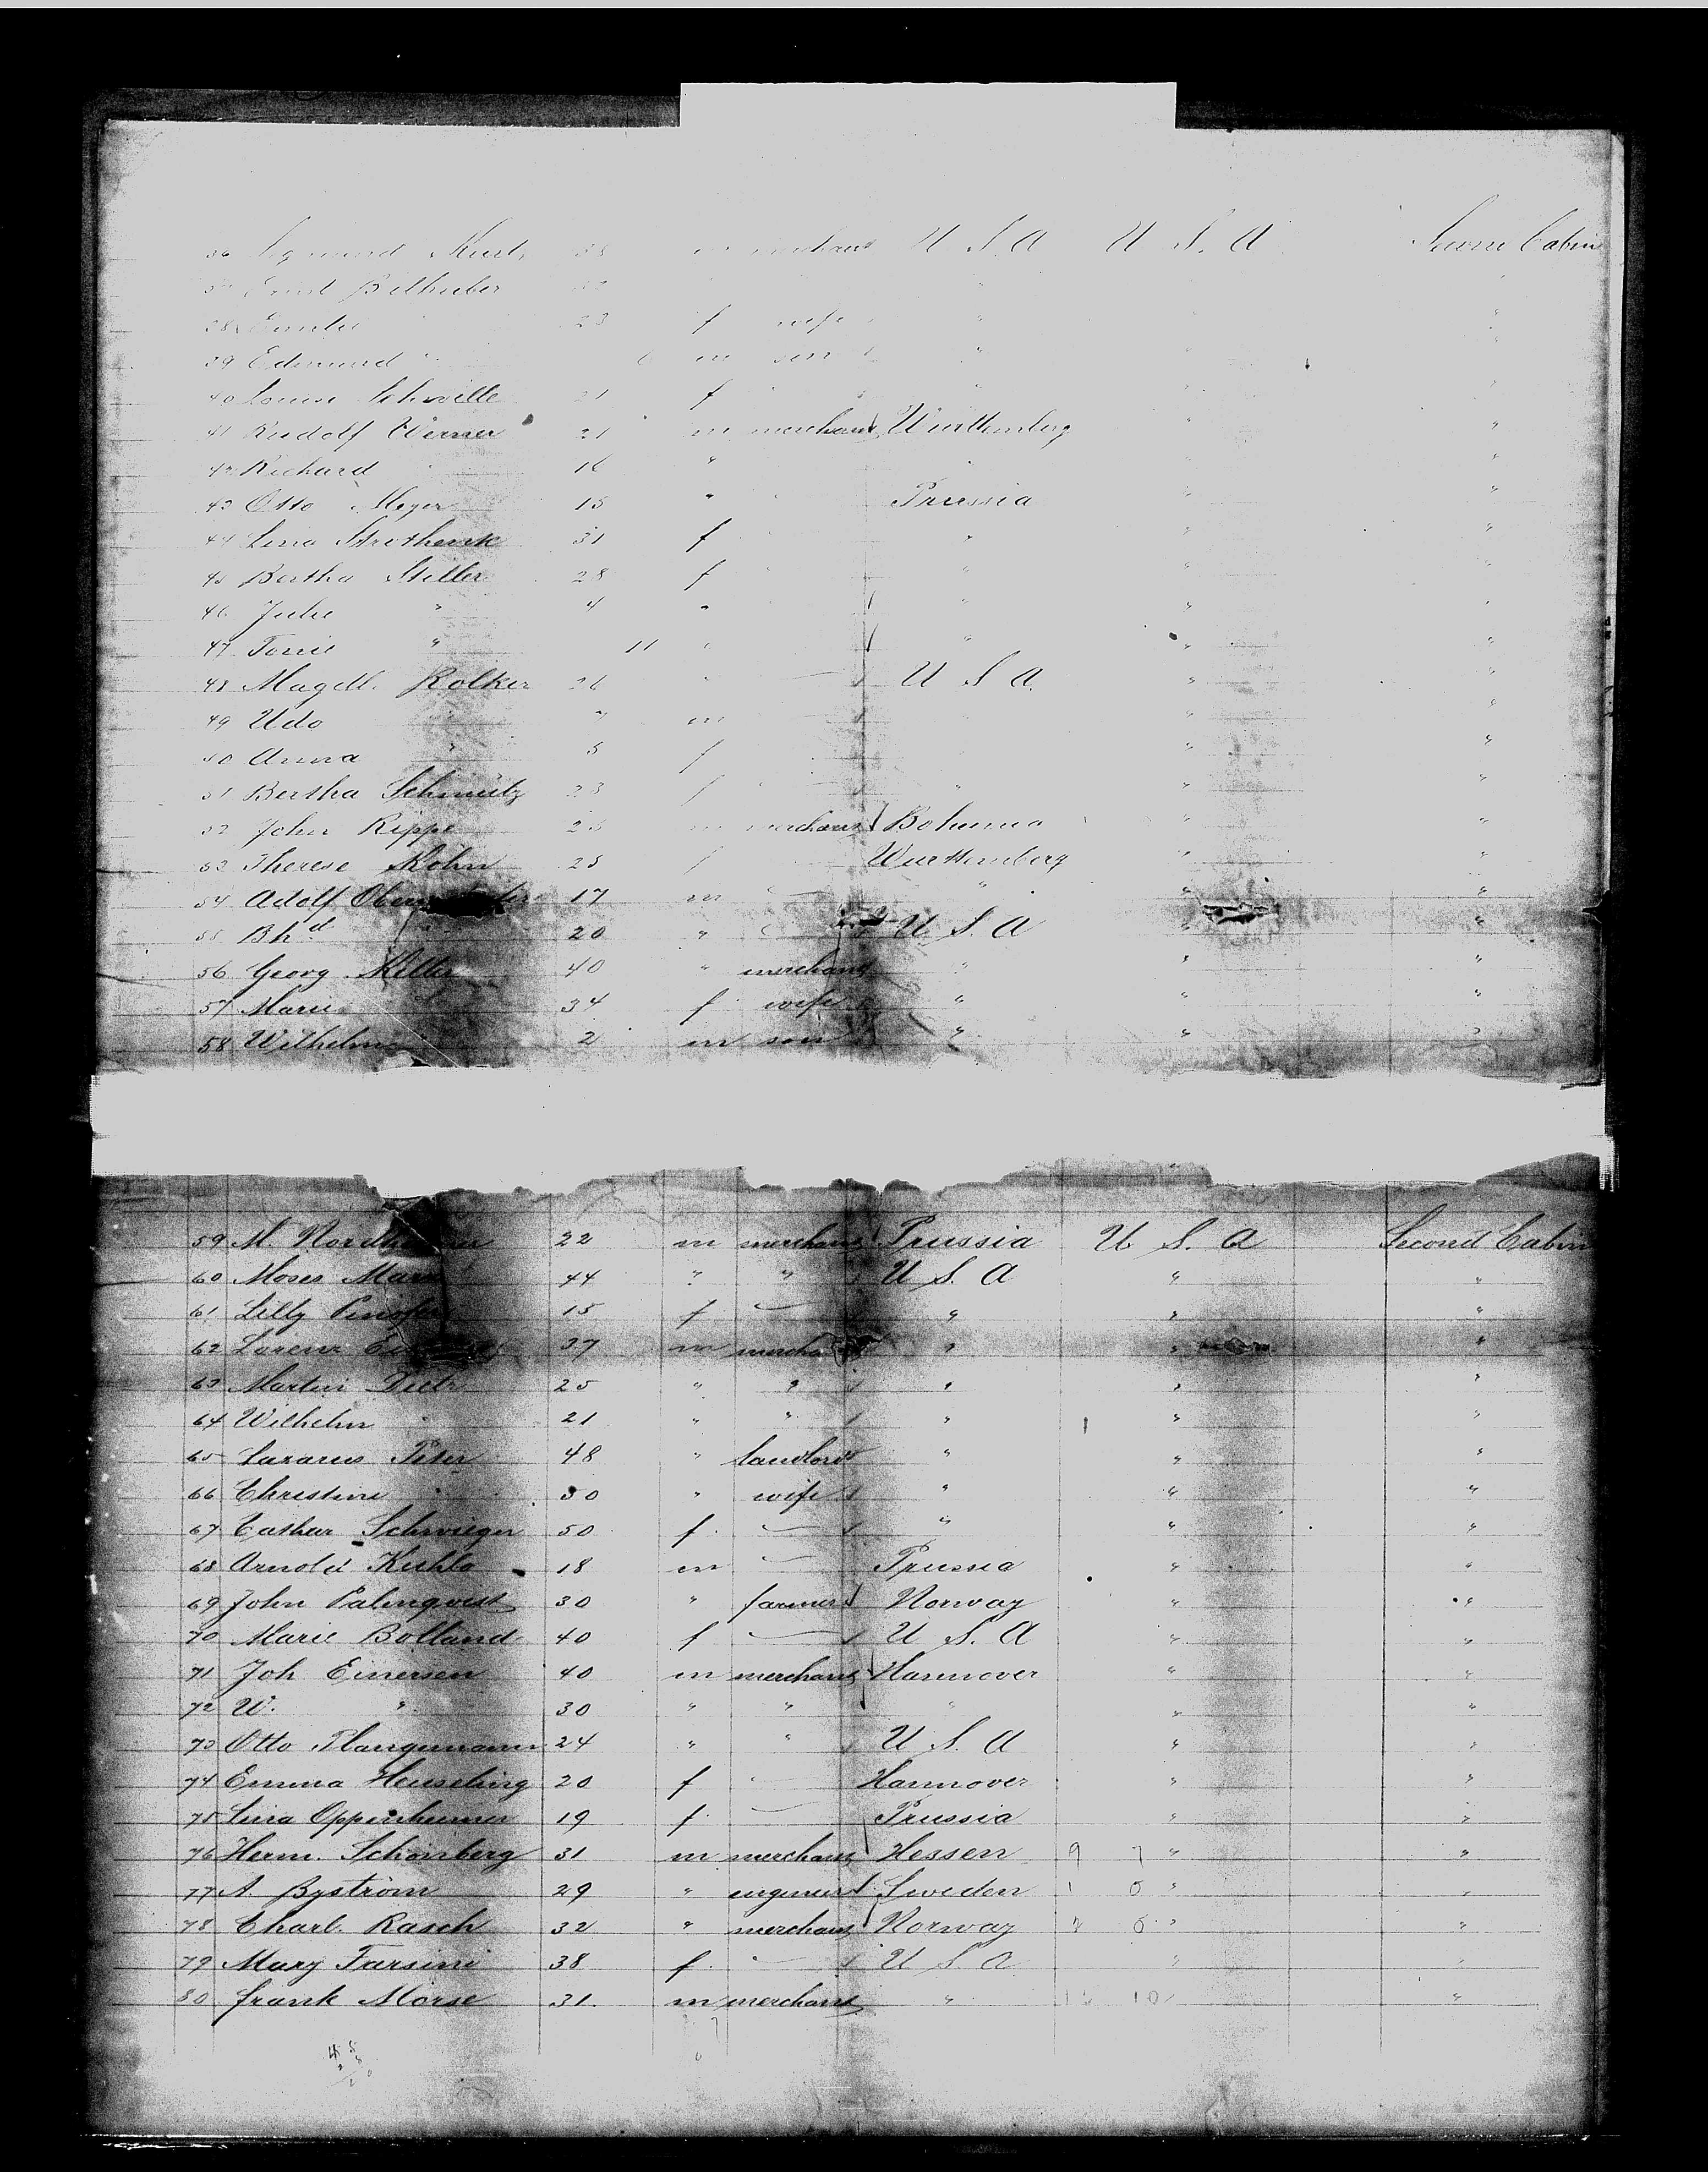 36 Sigmund 38 m merchant U S. A U. S. A Second Cabin
37 Ernst Bilhuber "
38 Emilie " 23 f wife " "
39 Edmund " m son " "
40 Louise Schwille 21 f " "
41 Rudolf Werner 21 m merchant Württemberg " "
42 Richard " 16 " " "
43 Otto Meyer 15 " Prussia " "
44 Lina 31 f " " "
45 Bertha Stiller 28 f " " "
46 Julie " 4 " " " "
47 " 11 " " " "
48 Magdl. Rolker 26 " U S A. " "
49 Udo " m " "
50 Anna " 5 f " "
51 Bertha Schmitz 23 f " " "
52 John Rippe m merchant Bohemia " "
53 Therese Kohn 25 f Wurttemberg " "
54 Adolf 17 m " " "
55 Bhd " 20 " U S. A " "
56 Georg Keller 40 " merchant " " "
57 Marie 34 f wife " " "
58 Wilhelm 2 m son " " "
59 M. 22 m merchant Prussia U S. A Second Cabin
60 Moses 44 " " U S. A " "
61 Lilly 15 f " " "
62 Lorenz 37 m " " "
63 Martin Dietz 25 " " " " "
64 Wilhelm " 21 " " " " "
65 Lazarus Peter 48 " landlord " " "
66 Christine " 50 " wife " " "
67 Cathar Schwieger 50 f. " " "
68 Arnold Kuhlo 18 m Prussia " "
69 John Palmqvist 30 " farmer Norway " "
70 Marie Bolland 40 f U S. A " "
71 Joh Einersen 40 m merchant Hannover " "
72 W. " 30 " " " " "
73 Otto Plangemann 24 " " U S. A " "
74 Emma Heuseling 20 f Hannover " "
75 Lina Oppenheimer 19 f. Prussia " "
76 Herm. Schönberg 31 m merchant Hessen 9 7 " "
77 A. Byström 29 " engineer Sweden 1 0 " "
78 Charl. Rasch 32 " merchant Norway " "
79 Mary Farsini 38 f. U S A " "
80 Frank Morse 31. m merchant " 10 "